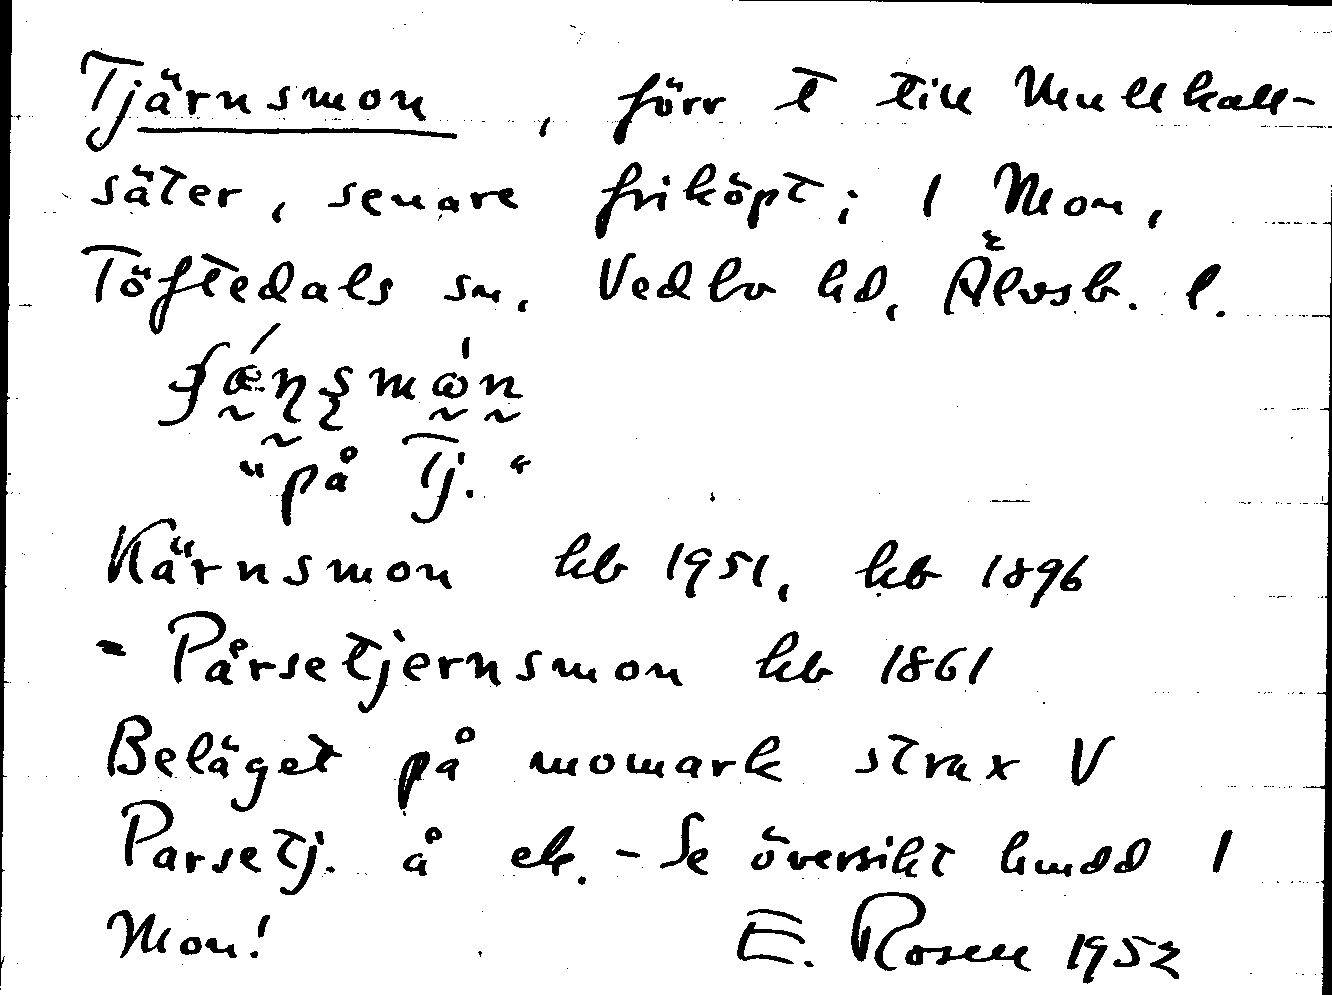 Tjärnsmon, förr t till Mullkall-
säter, senare friköpt; 1 Mon,
Töftedals sn, Vedbo hd, Älvsb. l.
"på Tj."
Kärnsmon kb 1951, kb 1896
- Pårsetjernsmon kb 1861
Beläget på momark strax V
Parsetj. å ek. - Se översikt hmdd 1
Mon! E. Rosell 1952